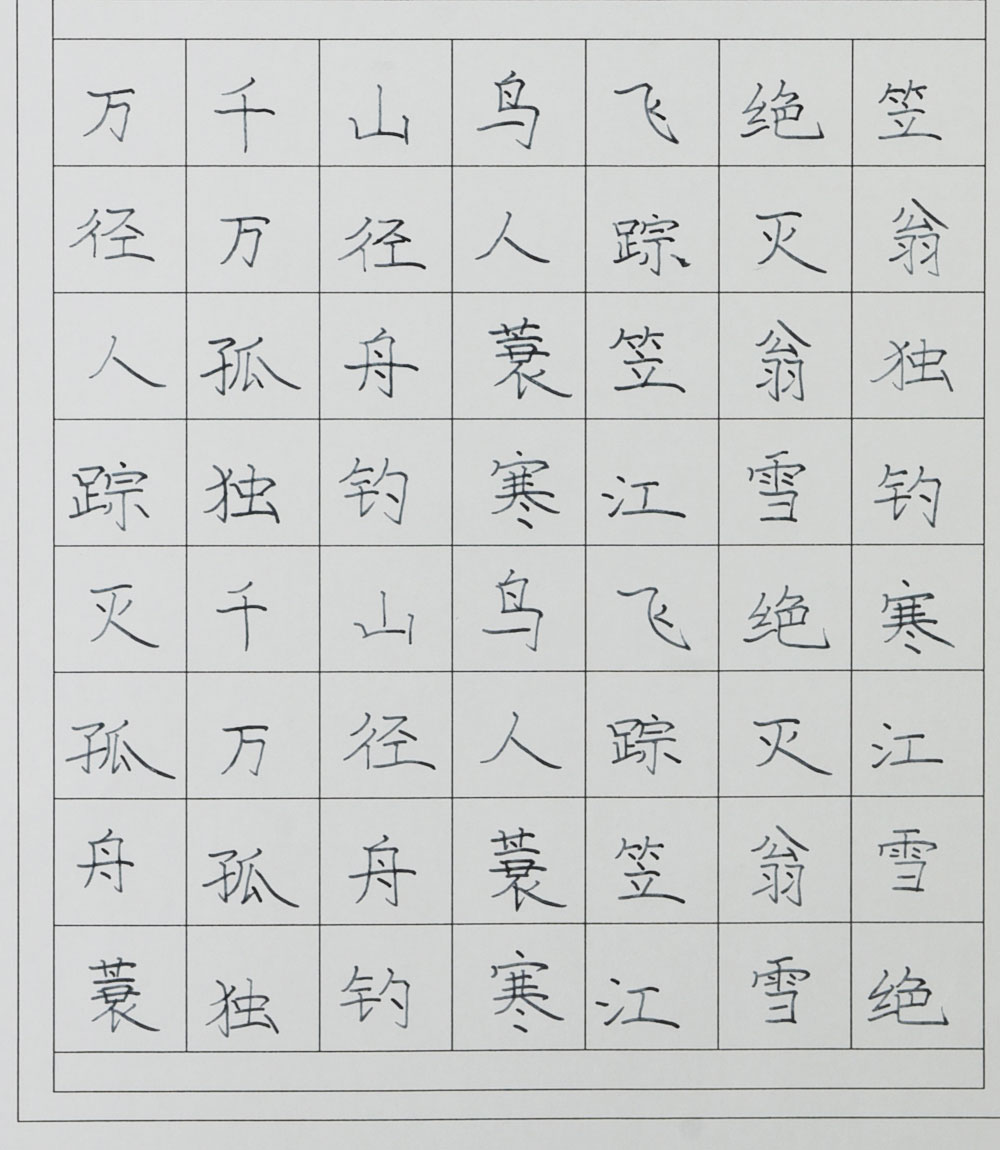 万千山鸟飞绝笠
径万径人踪灭翁
人孤舟蓑笠翁独
踪独钓寒江雪钓
灭千山鸟飞绝寒
孤万径人踪灭江
舟孤舟蓑笠翁雪
蓑独钓寒江雪绝